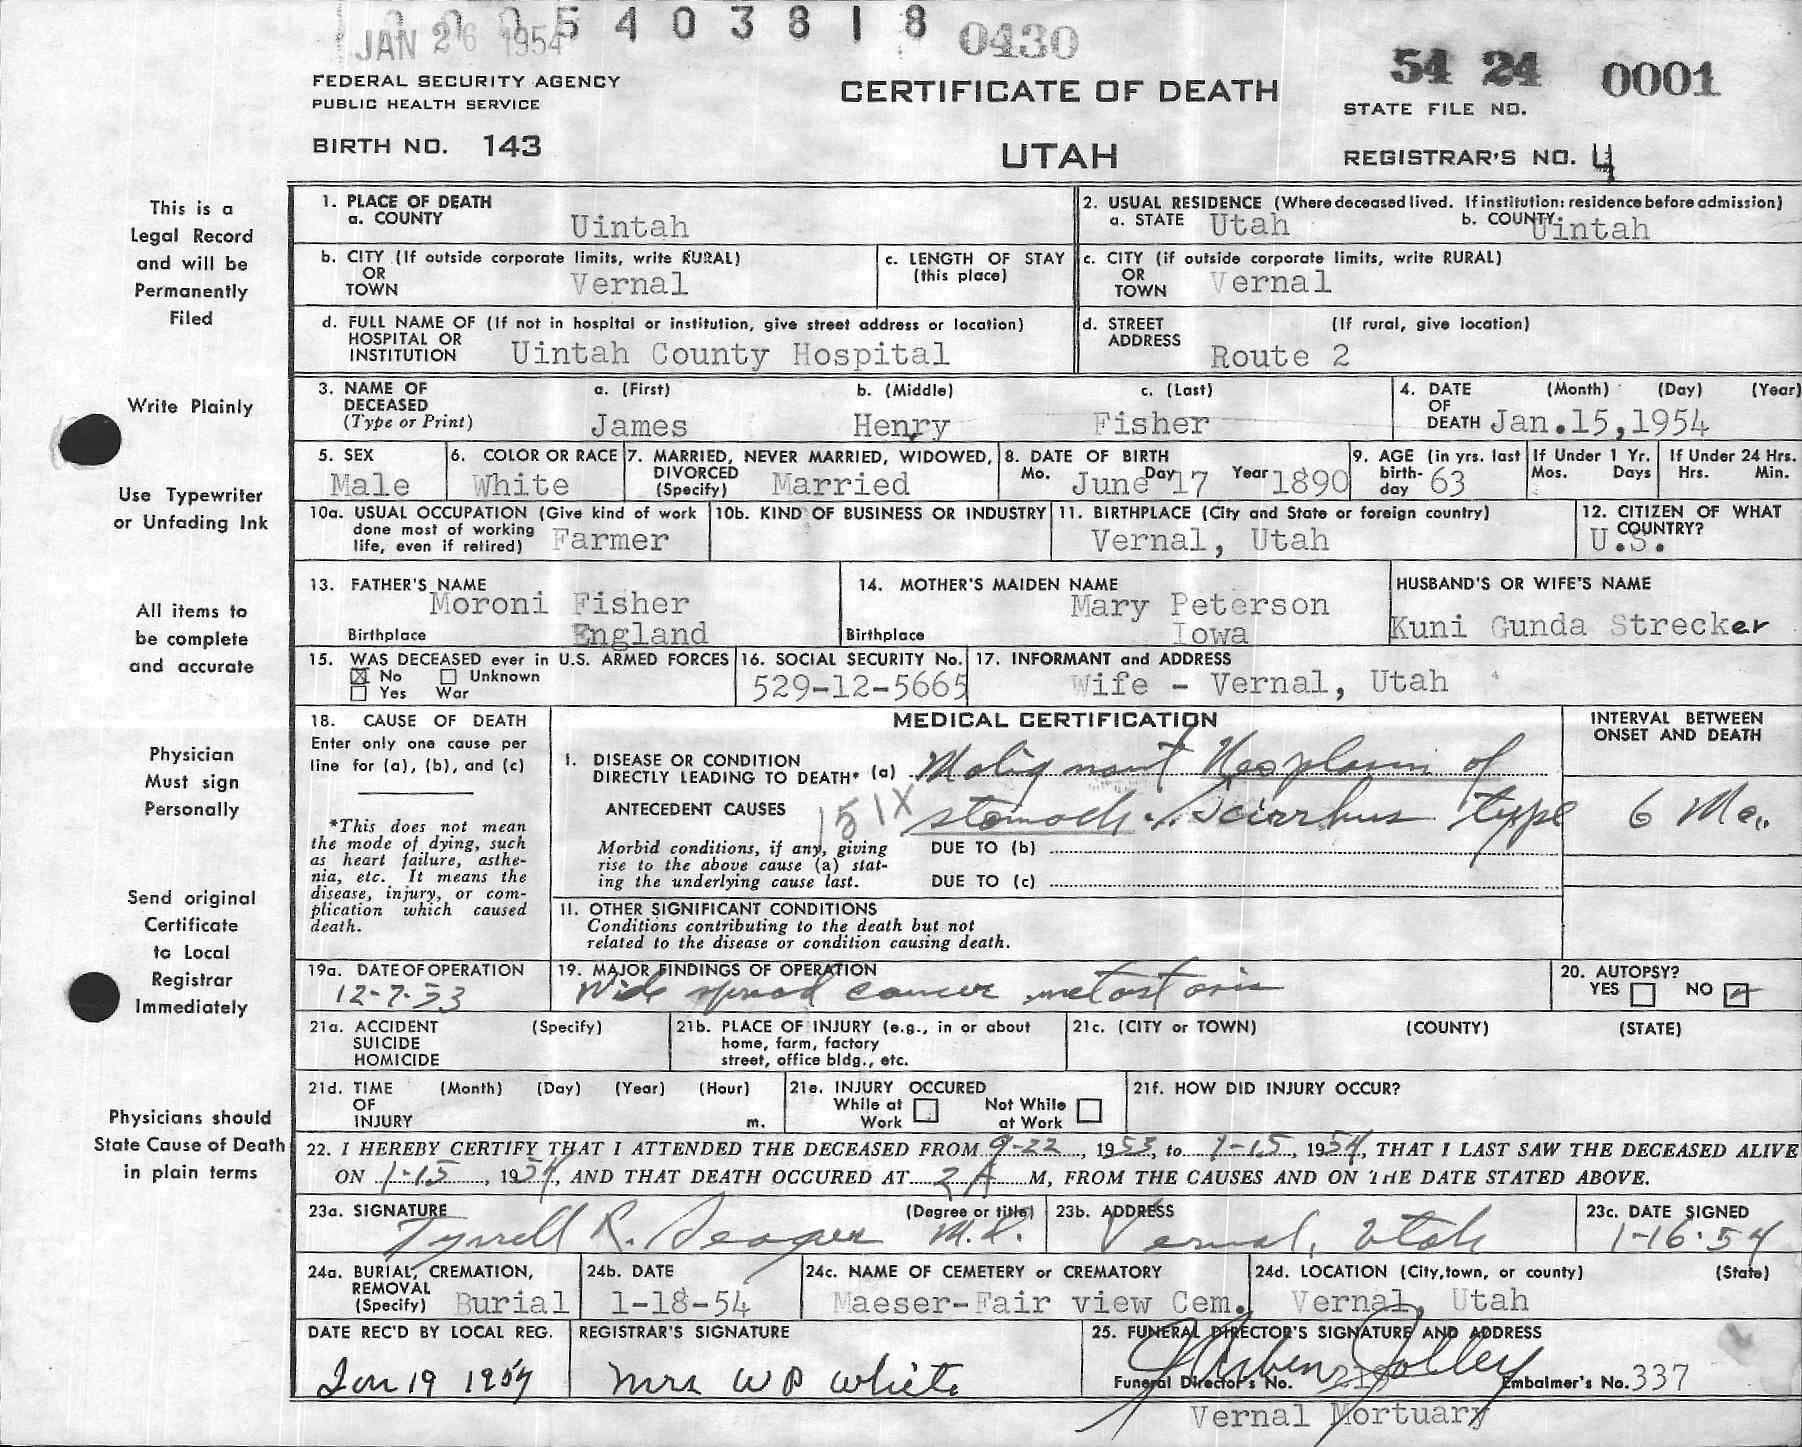 JAN 26 1954 5 4 0 3 8 1 8 0430
54 24 0001
FEDERAL SECURITY AGENCY
PUBLIC HEALTH SERVICE
CERTIFICATE OF DEATH
STATE FILE NO.
BIRTH NO. 143
UTAH
REGISTRAR'S NO. 4
This is a
Legal Record
and will be
Permanently
Filed
Write Plainly
Use Typewriter
or Unfading Ink
All items to
be complete
and accurate
Physician
Must sign
Personally
Send original
Certificate
to Local
Registrar
Immediately
Physicians should
State Cause of Death
in plain terms
1. PLACE OF DEATH
a. COUNTY Uintah
2. USUAL RESIDENCE (Where deceased lived. If institution: residence before admission)
a. STATE Utah b. COUNTY Uintah
b. CITY (If outside corporate limits, write RURAL)
OR
TOWN Vernal
c. LENGTH OF STAY
(this place)
c. CITY (if outside corporate limits, write RURAL)
OR
TOWN Vernal
d. FULL NAME OF (If not in hospital or institution, give street address or location)
HOSPITAL OR
INSTITUTION Uintah County Hospital
d. STREET (If rural, give location)
ADDRESS Route 2
3. NAME OF a. (First) b. (Middle) c. (Last)
DECEASED
(Type or Print) James Henry Fisher
4. DATE (Month) (Day) (Year)
OF
DEATH Jan.15,1954
5. SEX
Male
6. COLOR OR RACE
White
7. MARRIED, NEVER MARRIED, WIDOWED,
DIVORCED
(Specify) Married
8. DATE OF BIRTH
Mo. June Day 17 Year 1890
9. AGE (in yrs. last
birth-
day 63
If Under 1 Yr.
Mos. Days
If Under 24 Hrs.
Hrs. Min.
10a. USUAL OCCUPATION (Give kind of work
done most of working
life, even if retired) Farmer
10b. KIND OF BUSINESS OR INDUSTRY
11. BIRTHPLACE (City and State or foreign country)
Vernal, Utah
12. CITIZEN OF WHAT
COUNTRY?
U.S.
13. FATHER'S NAME
Moroni Fisher
Birthplace England
14. MOTHER'S MAIDEN NAME
Mary Peterson
Birthplace Iowa
HUSBAND'S OR WIFE'S NAME
Kuni Gunda Strecker
15. WAS DECEASED ever in U.S. ARMED FORCES
☒ No ☐ Unknown
☐ Yes War
16. SOCIAL SECURITY No.
529-12-5665
17. INFORMANT and ADDRESS
Wife - Vernal, Utah
18. CAUSE OF DEATH
Enter only one cause per
line for (a), (b), and (c)
*This does not mean
the mode of dying, such
as heart failure, asthe-
nia, etc. It means the
disease, injury, or com-
plication which caused
death.
MEDICAL CERTIFICATION
INTERVAL BETWEEN
ONSET AND DEATH
I. DISEASE OR CONDITION
DIRECTLY LEADING TO DEATH* (a) Malignant Neoplasm of
ANTECEDENT CAUSES 151X stomach - Scirrhus type 6 Mo.
Morbid conditions, if any, giving
rise to the above cause (a) stat-
ing the underlying cause last.
DUE TO (b)
DUE TO (c)
II. OTHER SIGNIFICANT CONDITIONS
Conditions contributing to the death but not
related to the disease or condition causing death.
19a. DATE OF OPERATION
12-7-53
19. MAJOR FINDINGS OF OPERATION
Wide spread cancer metastasis
20. AUTOPSY?
YES ☐ NO ☒
21a. ACCIDENT (Specify)
SUICIDE
HOMICIDE
21b. PLACE OF INJURY (e.g., in or about
home, farm, factory
street, office bldg., etc.
21c. (CITY or TOWN) (COUNTY) (STATE)
21d. TIME (Month) (Day) (Year) (Hour)
OF
INJURY m.
21e. INJURY OCCURED
While at ☐ Not While ☐
Work at Work
21f. HOW DID INJURY OCCUR?
22. I HEREBY CERTIFY THAT I ATTENDED THE DECEASED FROM 9-22, 1953, to 1-15, 1954, THAT I LAST SAW THE DECEASED ALIVE
ON 1-15, 1954, AND THAT DEATH OCCURED AT 2 A M, FROM THE CAUSES AND ON THE DATE STATED ABOVE.
23a. SIGNATURE (Degree or title)
Tyrrell R. Seager M.D.
23b. ADDRESS
Vernal, Utah
23c. DATE SIGNED
1-16-54
24a. BURIAL, CREMATION,
REMOVAL
(Specify) Burial
24b. DATE
1-18-54
24c. NAME OF CEMETERY or CREMATORY
Maeser-Fair view Cem.
24d. LOCATION (City, town, or county) (State)
Vernal, Utah
DATE REC'D BY LOCAL REG.
Jan 19 1954
REGISTRAR'S SIGNATURE
Mrs W P White
25. FUNERAL DIRECTOR'S SIGNATURE AND ADDRESS
Jolley
Funeral Director's No. Embalmer's No. 337
Vernal Mortuary